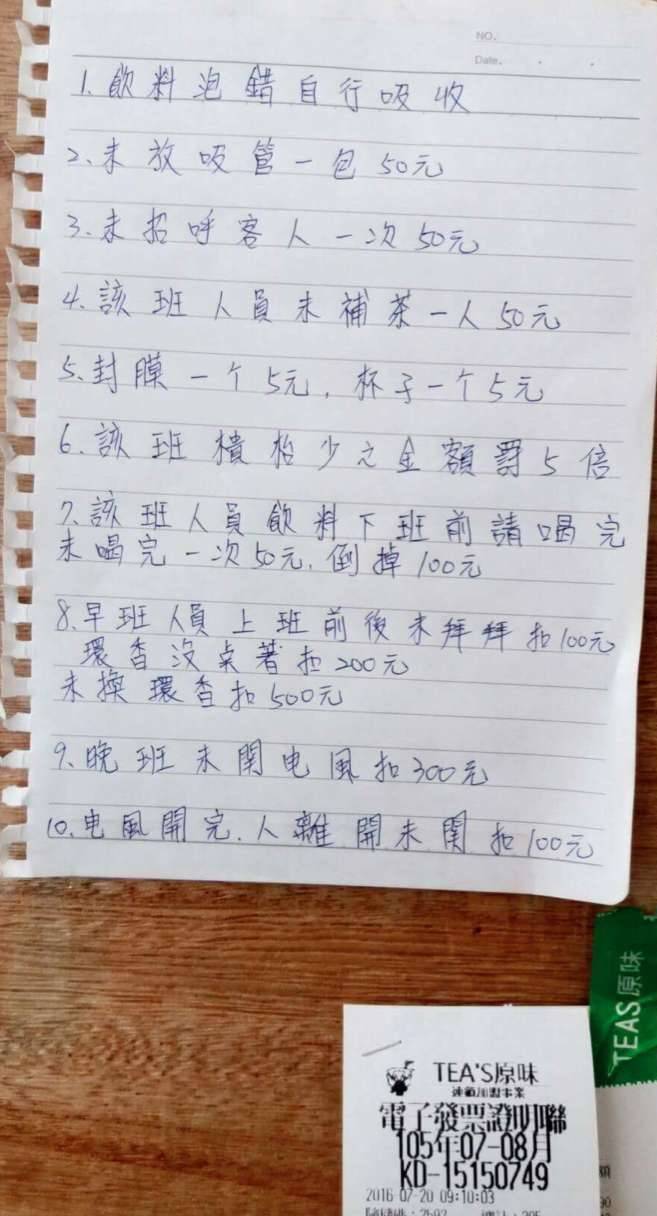 NO.
Date.
1. 飲料泡錯自行吸收
2、未放吸管一包50元
3、未招呼客人一次50元
4、該班人員未補茶一人50元
5、封膜一个5元，杯子一个5元
6、該班櫃枱少之金額罰5倍
7、該班人員飲料下班前請喝完
未喝完一次50元，倒掉100元
8、早班人員上班前後未拜拜扣100元
環香沒点著扣200元
未換環香扣500元
9、晚班未関电風扣300元
10、电風開完．人離開未関扣100元
TEAS原味
TEA'S原味
連鎖加盟事業
電子發票證明聯
105年07-08月
KD-15150749
2016-07-20 09:10:03